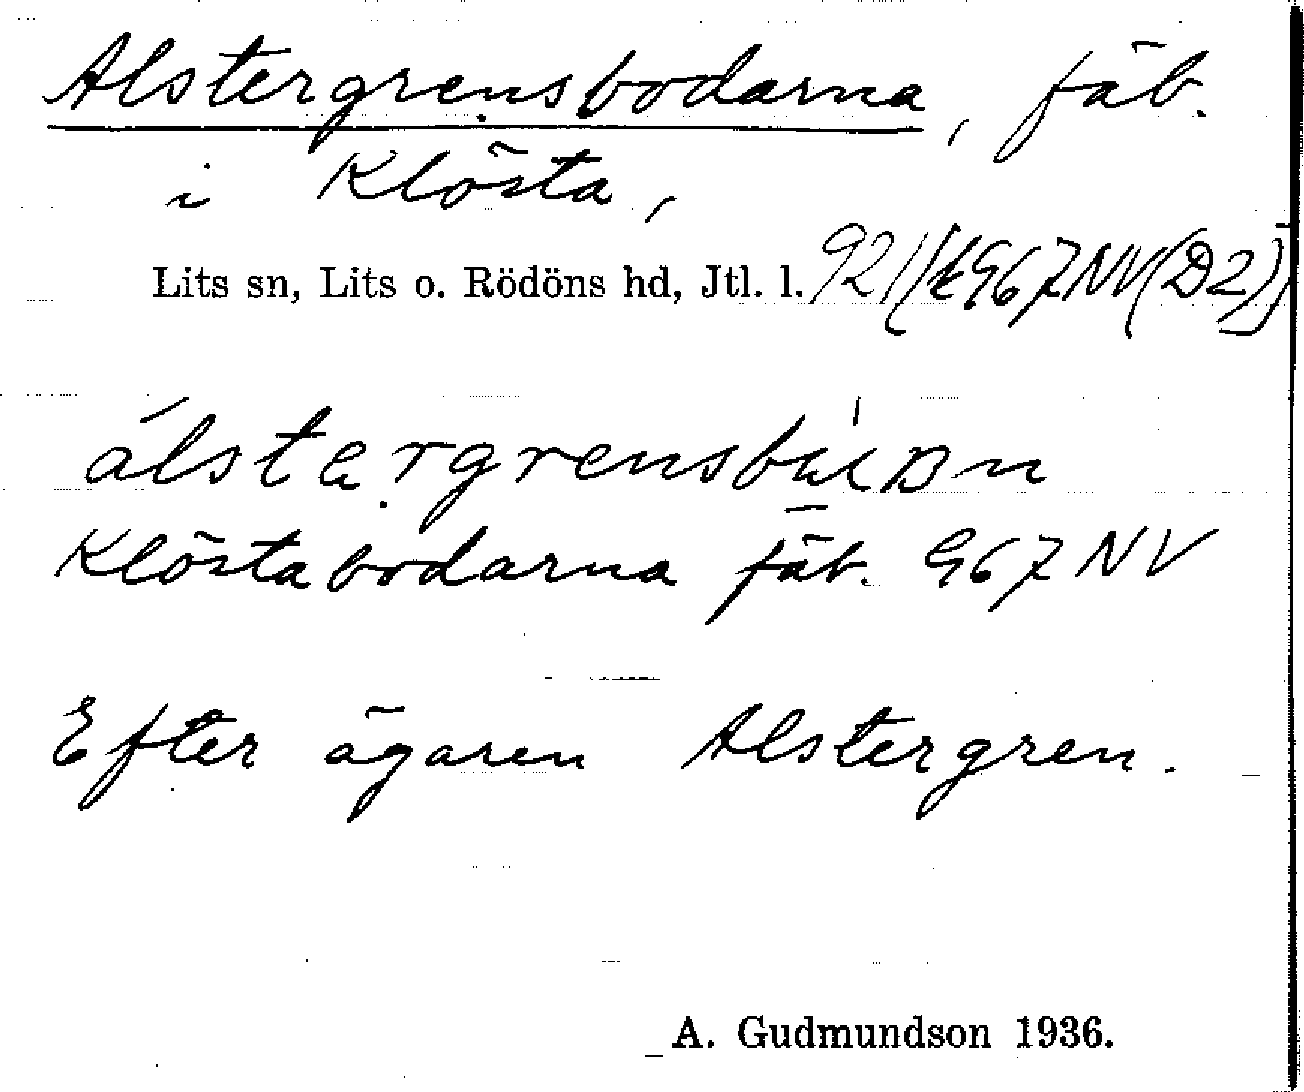 Alstergrensbodarna, fäb.
i Klösta,
Lits sn, Lits o. Rödöns hd, Jtl. l. 92
Klöstabodarna fäb. 967 NV
Efter ägaren Alstergren.
A. Gudmundson 1936.